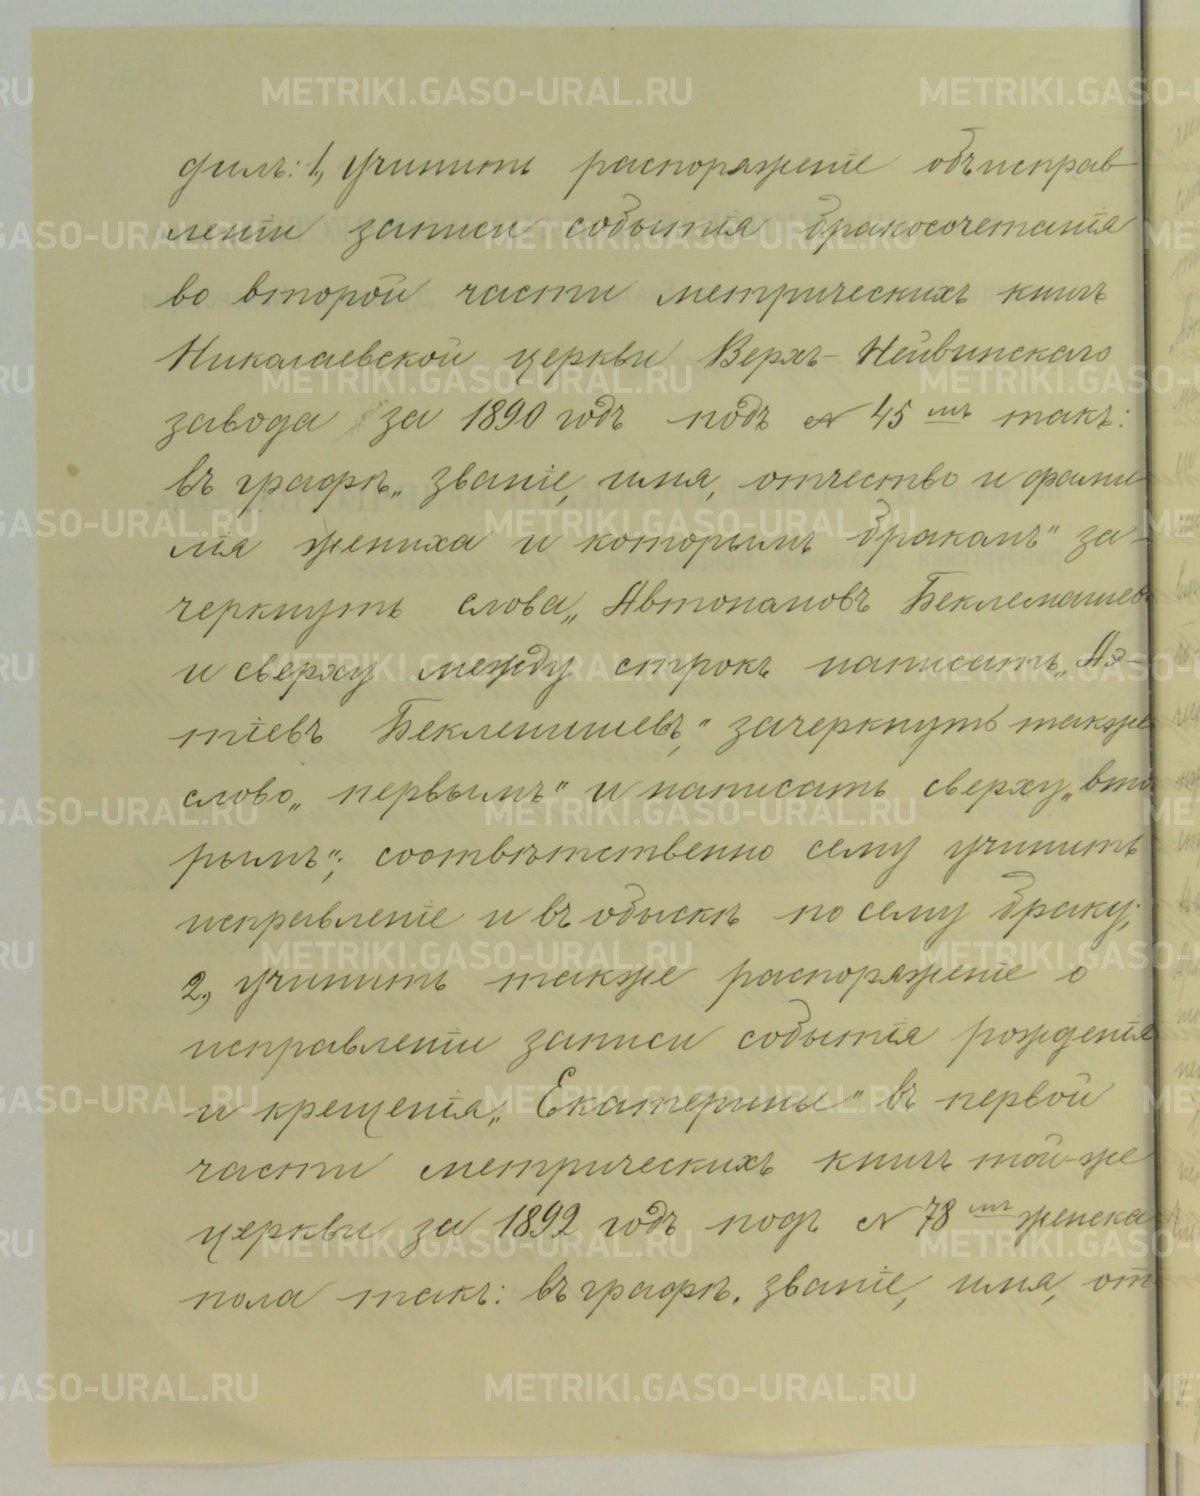 филъ: 1, Учинить распоряженіе объ исправ-
леніи записи событія бракосочетанія
во второй части метрическихъ книгъ
Николаевской церкви Верхъ-Нейвинскаго
завода за 1890 годъ подъ № 45мъ такъ:
въ графѣ „званіе, имя, отчество и фами-
лія жениха и которымъ бракомъ" за-
черкнуть слова „Автономовъ Беклемашевъ
и сверху между строкъ написать „
Беклемишевъ," зачеркнуть также
слово „первымъ" и написать сверху „вто-
рымъ"; соотвѣтственно сему учинить
исправленіе и въ обыскѣ по сему браку;
2, учинить также распоряженіе о
исправленіи записи событія рожденія
и крещенія „Екатерины" въ первой
части метрическихъ книгъ той-же
церкви за 1892 годъ подъ № 78мъ женска
пола такъ: въ графѣ „званіе, имя, от
METRIKI.GASO-URAL.RU